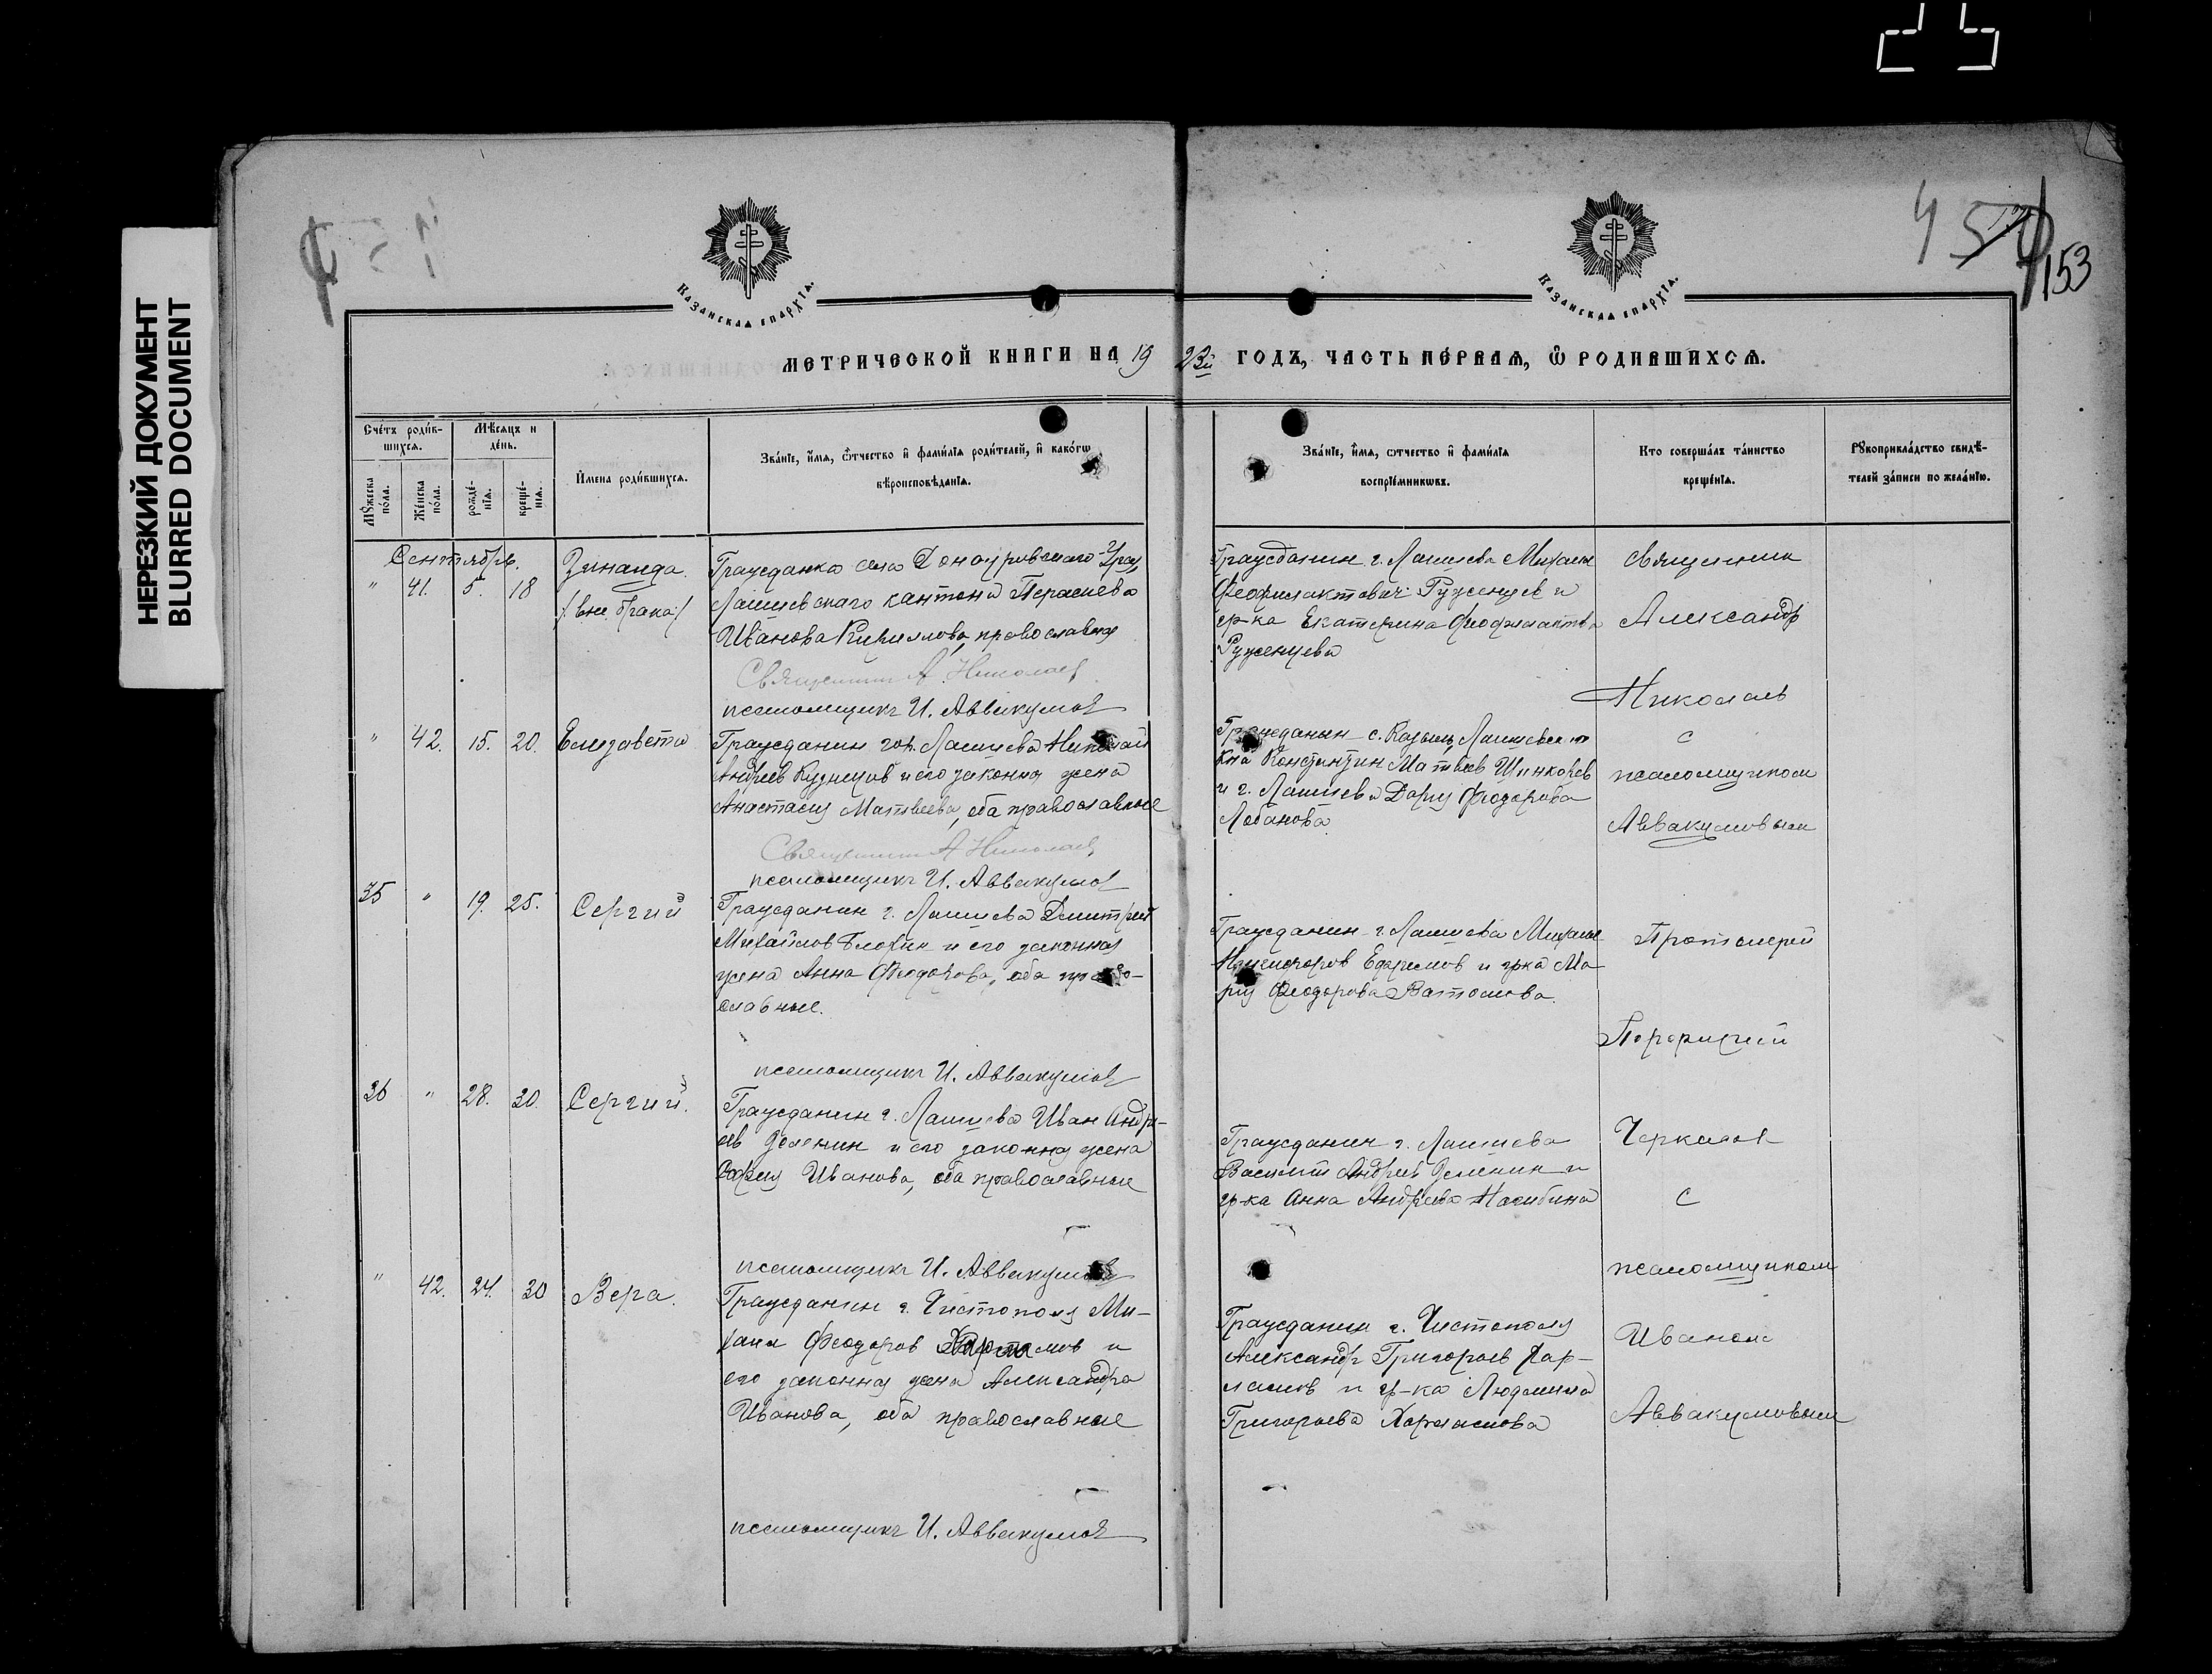 НЕРЕЗКИЙ ДОКУМЕНТ
BLURRED DOCUMENT
4 153
Казанская епархїа.
Казанская епархїа.
МЕТРИЧЕСКОЙ КНИГИ НА 1923й ГОДЪ, ЧАСТЬ ПЕРВАЯ, Ѿ РОДИВШИХСЯ.
Счетъ родившихся.
Мѣсяцъ и день.
Мужеска пола.
Женска пола.
рожденїя.
крещенїя.
Имена родившихся.
Званїе, имя, отчество и фамилїя родителей, и какогѡ
вѣроисповѣданїя.
Званїе, имя, отчество и фамилїя
воспрїемникѡвъ.
Кто совершалъ таинство
крещенїя.
Рукоприкладство свидѣ-
телей записи по желанїю.
Сентябрь.
" 41. 5. 18
Зинаида
/: вне брака :/
Гражданка села
Лаишевского кантона
Иванова Кириллова, православная
Священник А. Николаев
псаломщикъ И. Аввакумов
Гражданин г. Лаишева Михаил
Феофилактович Руженцев и
гр-ка Екатерина Феофилактова
Руженцева
Священник
Александр
Николаев
с
псаломщиком
Аввакумовым
" 42. 15. 20. Елизавета
Гражданин гор. Лаишева Николай
Андреев Кузнецов и его законная жена
Анастасия Матвеева, оба православные
Священник А. Николаев
псаломщикъ И. Аввакумов
Гражданин с. Лаишевск
к-на Константин Матвеев Шинкарев
и г. Лаишева Дария Феодорова
Лобанова.
35 " 19. 25. Сергий
Гражданин г. Лаишева Димитрий
Михайлов Блохин и его законная
жена Анна Феодорова, оба право-
славные.
псаломщикъ И. Аввакумов
Гражданин г. Лаишева Михаил
Никифоров Ефремов и гр-ка Ма-
рия Феодорова Ватолова.
Протоиерей
Порфирий
Черкасов
с
псаломщиком
Иваном
Аввакумовым
36 " 28. 30. Сергий.
Гражданин г. Лаишева Иван Андре-
ев Зеленин и его законная жена
София Иванова, оба православные
псаломщикъ И. Аввакумов
Гражданин г. Лаишева
Василий Андреев Зеленин и
гр-ка Анна Андреева Насибина
" 42. 24. 30 Вера.
Гражданин г. Чистополя Ми-
хаил Феодоров и
его законная жена Александра
Иванова, оба православные
псаломщикъ И. Аввакумов
Гражданин г. Чистополя
Александр Григорьев Хар-
ламов и гр-ка Людмила
Григорьева Харламова